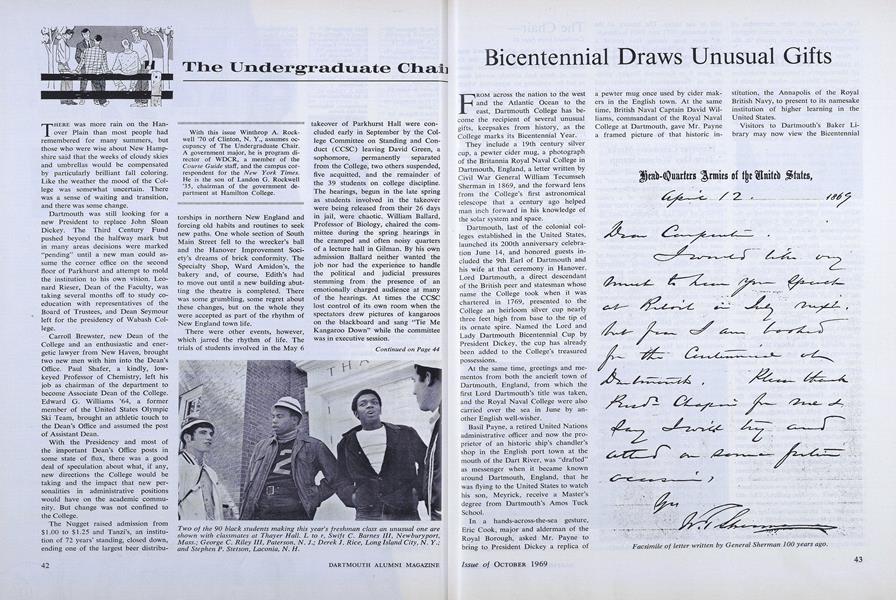 The Undergraduate Chair
THERE was more rain on the Han-
over Plain than most people had
remembered for many summers, but
those who were wise about New Hamp-
shire said that the weeks of cloudy skies
and umbrellas would be compensated
by particularly brilliant fall coloring.
Like the weather the mood of the Col-
lege was somewhat uncertain. There
was a sense of waiting and transition,
and there was some change.
Dartmouth was still looking for a
new President to replace John Sloan
Dickey. The Third Century Fund
pushed beyond the halfway mark but
in many areas decisions were marked
"pending" until a new man could as-
sume the corner office on the second
floor of Parkhurst and attempt to mold
the institution to his own vision. Leon-
ard Rieser, Dean of the Faculty, was
taking several months off to study co-
education with representatives of the
Board of Trustees, and Dean Seymour
left for the presidency of Wabash Col-
lege.
Carroll Brewster, new Dean of the
College and an enthusiastic and ener-
getic lawyer from New Haven, brought
two new men with him into the Dean's
Office. Paul Shafer, a kindly, low-
keyed Professor of Chemistry, left his
job as chairman of the department to
become Associate Dean of the College.
Edward G. Williams '64, a former
member of the United States Olympic
Ski Team, brought an athletic touch to
the Dean's Office and assumed the post
of Assistant Dean.
With the Presidency and most of
the important Dean's Office posts in
some state of flux, there was a good
deal of speculation about what, if any,
new directions the College would be
taking and the impact that new per-
sonalities in administrative positions
would have on the academic commu-
nity. But change was not confined to
the College.
The Nugget raised admission from
$1.00 to $1.25 and Tanzi's, an institu-
tion of 72 years' standing, closed down,
ending one of the largest beer distribu-
With this issue Winthrop A. Rock-
well '70 of Clinton, N. Y., assumes oc-
cupancy of The Undergraduate Chair.
A government major, he is program di-
rector of WDCR, a member of the
Course Guide staff, and the campus cor-
respondent for the New York Times.
He is the son of Landon G. Rockwell
'35, chairman of the government de-
partment at Hamilton College.
torships in northern New England and
forcing old habits and routines to seek
new paths. One whole section of South
Main Street fell to the wrecker's ball
and the Hanover Improvement Soci-
ety's dreams of brick conformity. The
Specialty Shop, Ward Amidon's, the
bakery and, of course, Edith's had
to move out until a new building abut-
ting the theatre is completed. There
was some grumbling, some regret about
these changes, but on the whole they
were accepted as part of the rhythm of
New England town life.
There were other events, however,
which jarred the rhythm of life. The
trials of students involved in the May 6
takeover of Parkhurst Hall were con-
cluded early in September by the Col-
lege Committee on Standing and Con-
duct (CCSC) leaving David Green, a
sophomore, permanently separated
from the College, two others suspended,
five acquitted, and the remainder of
the 39 students on college discipline.
The hearings, begun in the late spring
as students involved in the takeover
were being released from their 26 days
in jail, were chaotic. William Ballard,
Professor of Biology, chaired the com-
mittee during the spring hearings in
the cramped and often noisy quarters
of a lecture hall in Gilman. By his own
admission Ballard neither wanted the
job nor had the experience to handle
the political and judicial pressures
stemming from the presence of an
emotionally charged audience at many
of the hearings. At times the CCSC
lost control of its own room when the
spectators drew pictures of kangaroos
on the blackboard and sang "Tie Me
Kangaroo Down" while the committee
was in executive session.
Continued on Page 44
Two of the 90 black students making this year's freshman class an unusual one are
shown with classmates at Thayer Hall. L to r, Swift C. Barnes III, Newburyport,
Mass.; George C. Riley III, Paterson, N. J.; Derek J. Rice, Long Island City, N. Y.;
and Stephen P. Stetson, Laconia, N. H.
42
DARTMOUTH ALUMNI MAGAZINE
Bicentennial Draws Unusual Gifts
FROM across the nation to the west
and the Atlantic Ocean to the
east, Dartmouth College has be-
come the recipient of several unusual
gifts, keepsakes from history, as the
College marks its Bicentennial Year.
They include a 19th century silver
cup, a pewter cider mug, a photograph
of the Britannia Royal Naval College in
Dartmouth, England, a letter written by
Civil War General William Tecumseh
Sherman in 1869, and the forward lens
from the College's first astronomical
telescope that a century ago helped
man inch forward in his knowledge of
the solar system and space.
Dartmouth, last of the colonial col-
leges established in the United States,
launched its 200th anniversary celebra-
tion June 14, and honored guests in-
cluded the 9th Earl of Dartmouth and
his wife at that ceremony in Hanover.
Lord Dartmouth, a direct descendant
of the British peer and statesman whose
name the College took when it was
chartered in 1769, presented to the
College an heirloom silver cup nearly
three feet high from base to the tip of
its ornate spire. Named the Lord and
Lady Dartmouth Bicentennial Cup by
President Dickey, the cup has already
been added to the College's treasured
possessions.
At the same time, greetings and me-
mentos from both the ancient town of
Dartmouth, England, from which the
first Lord Dartmouth's title was taken,
and the Royal Naval College were also
carried over the sea in June by an-
other English well-wisher.
Basil Payne, a retired United Nations
administrative officer and now the pro-
prietor of an historic ship's chandler's
shop in the English port town at the
mouth of the Dart River, was "drafted"
as messenger when it became known
around Dartmouth, England, that he
was flying to the United States to watch
his son, Meyrick, receive a Master's
degree from Dartmouth's Amos Tuck
School.
In a hands-across-the-sea gesture,
Eric Cook, major and alderman of the
Royal Borough, asked Mr. Payne to
bring to President Dickey a replica of
a pewter mug once used by cider mak-
ers in the English town. At the same
time, British Naval Captain David Wil-
liams, commandant of the Royal Naval
College at Dartmouth, gave Mr. Payne
a framed picture of that historic in-
stitution, the Annapolis of the Royal
British Navy, to present to its namesake
institution of higher learning in the
United States.
Visitors to Dartmouth's Baker Li-
brary may now view the Bicentennial
Head-Quarters Armies of the United States,
April 12. 1869
Dear Carpenter.
I would like very
much to hear you speak
at Detroit in July next.
but fear I am booked
for the Centennial at
Dartmouth. Please thank
Presdt. Chapin for me &
say I will try and
attend on some future
occasion,
Yrs
W. T. Sherman
Facsimile of letter written by General Sherman 100 years ago.
Issue of OCTOBER 1969
43